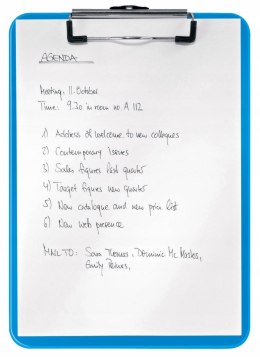 AGENDA
Meeting: 11. October
Time: 9.30 in room no. A 112
1) Address of welcome to new collegues
2) Contemporary Issues
3) Sales figures last quarter
4) Target figures new quarter
5) New catalogue and new price list
6) New web presence
MAIL TO: Sara Thomas, Dominic Mc Masters,
Emily